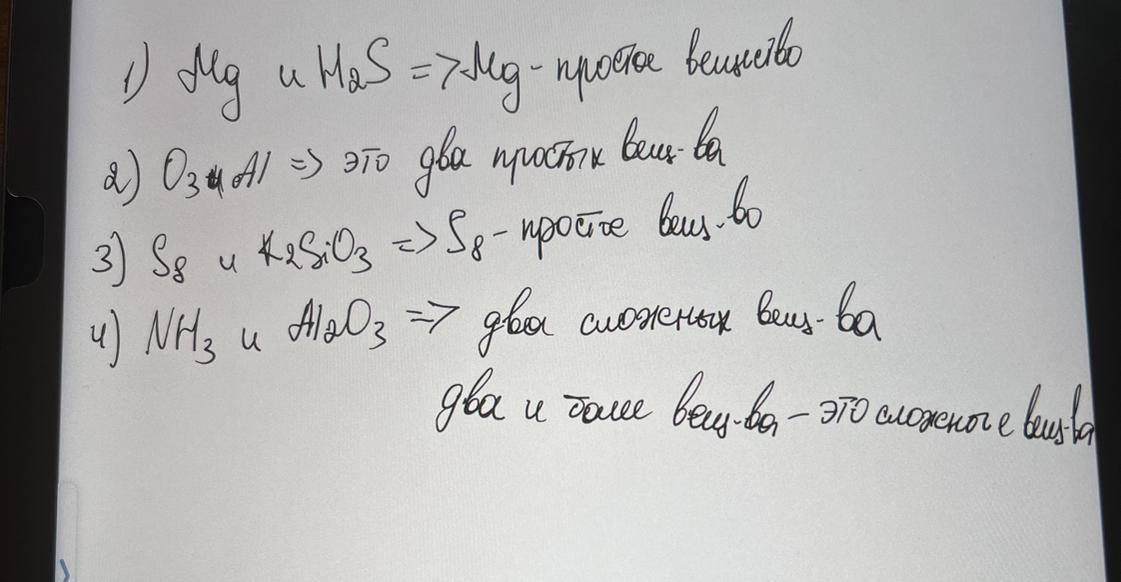 1) Mg и H2S => Mg - простое вещество
2) O3 и Al => это два простых вещ-ва
3) S8 и K2SiO3 => S8 - простое вещ-во
4) NH3 и Al2O3 => два сложных вещ-ва
два и более вещ-ва - это сложные вещ-ва